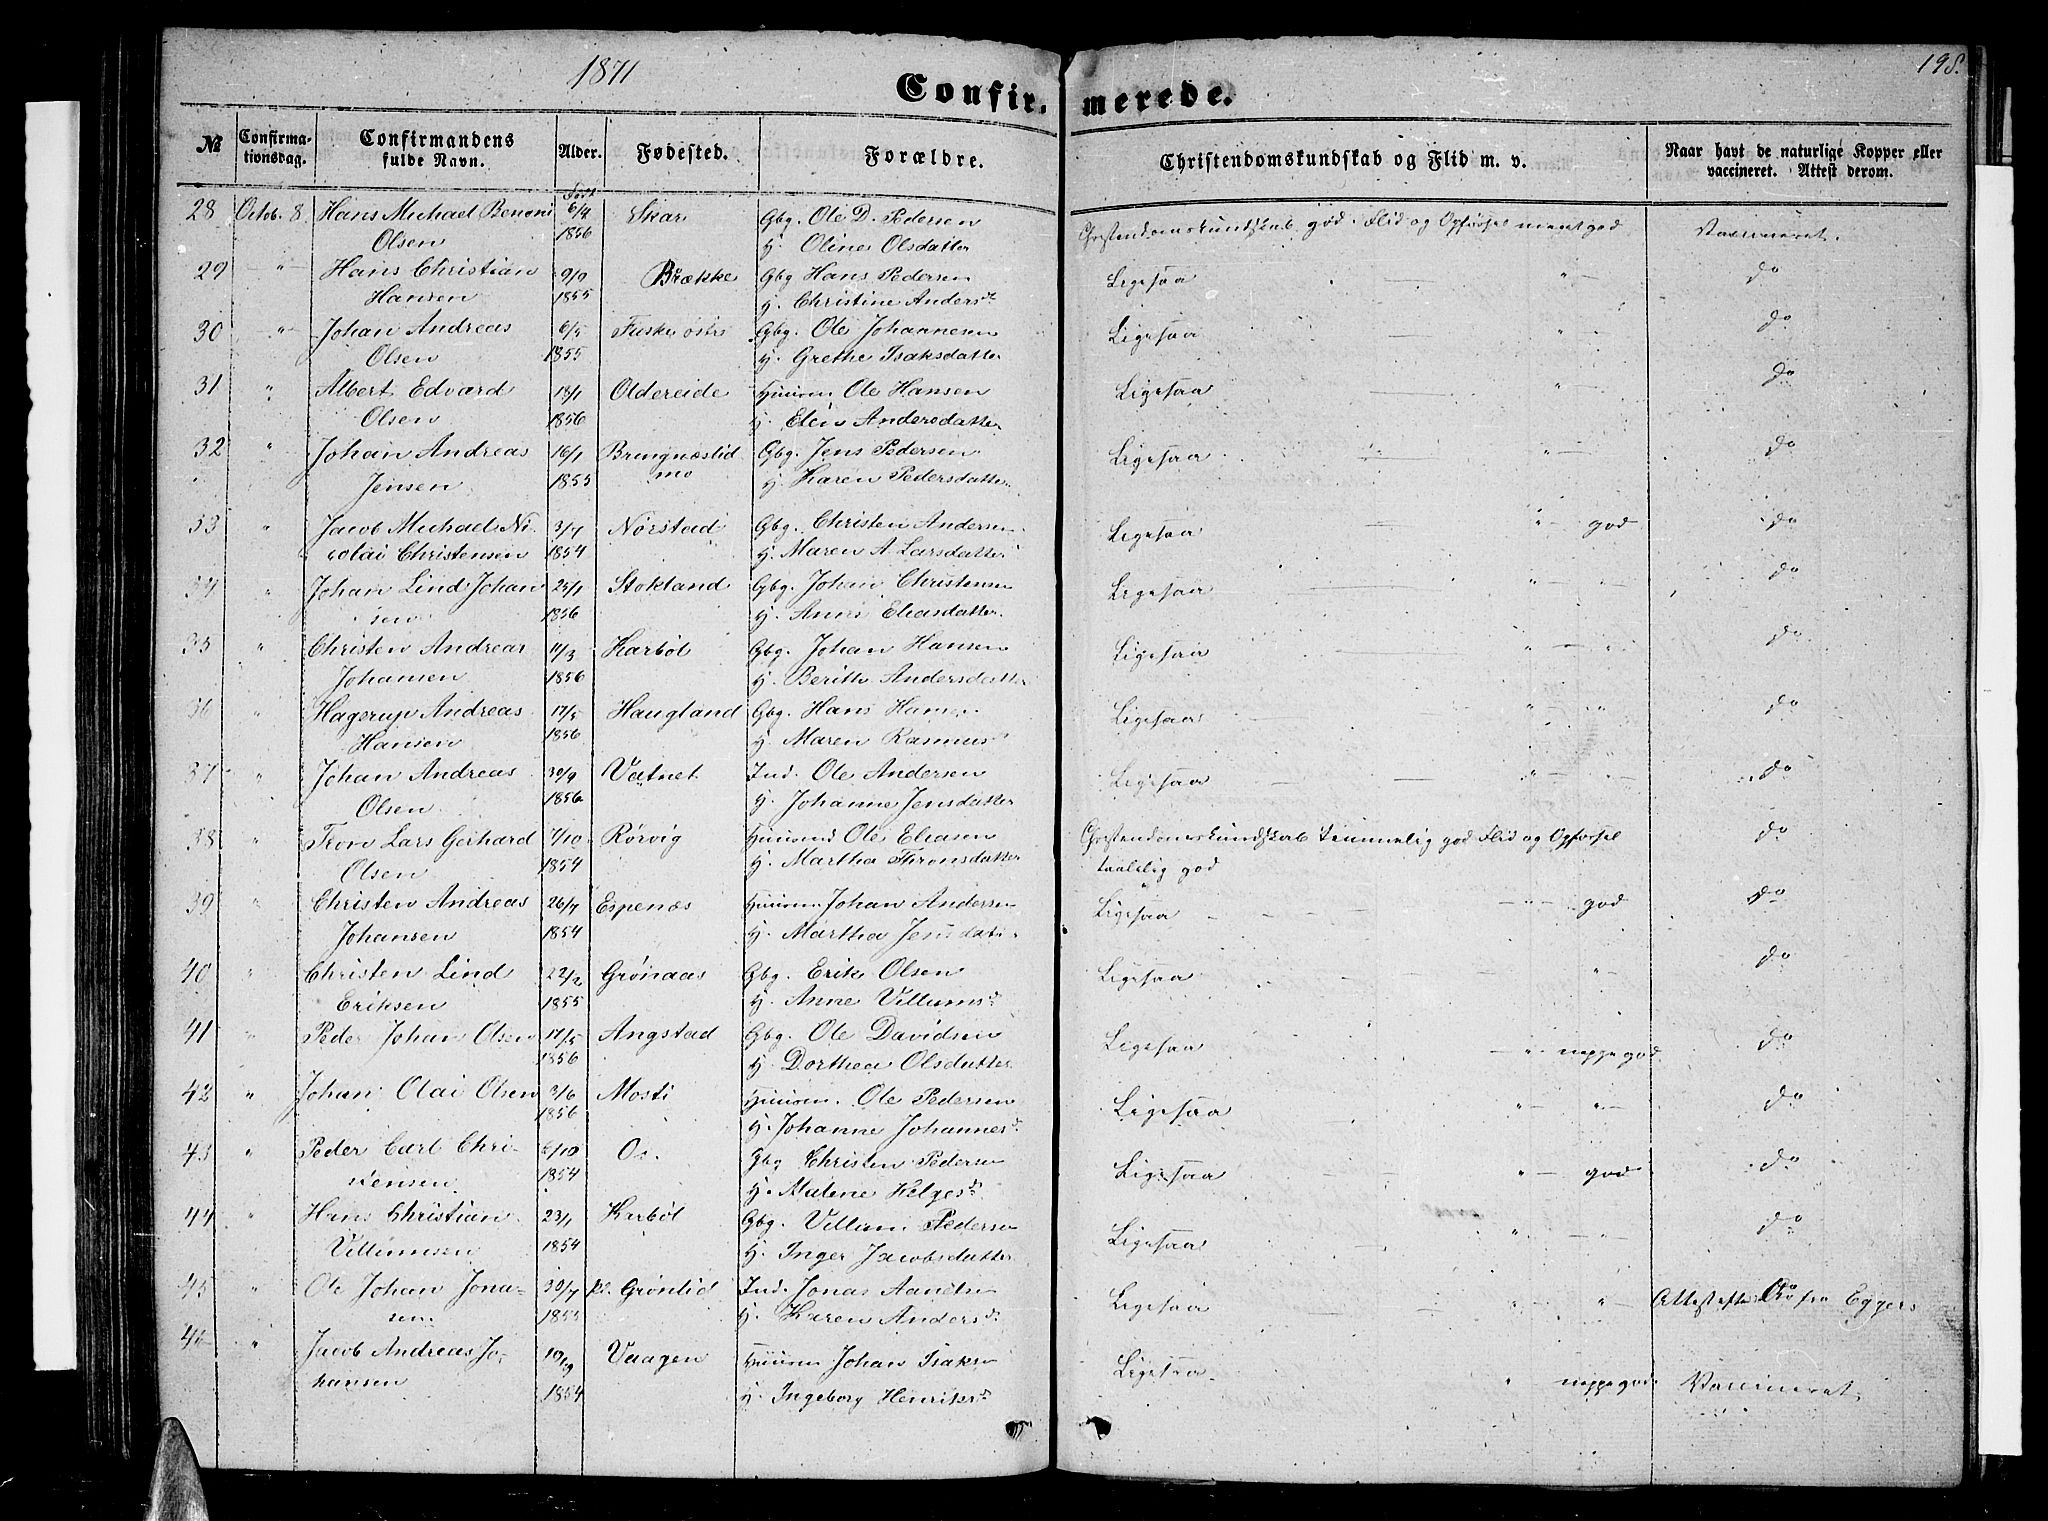 1871
198.
Confirmerede.
No
Confirmationsdag.
Confirmandens fulde Navn.
Alder.
Fødested.
Forældre.
Christendomskundskab og Flid m. v.
Naar havt de naturlige Kopper eller vaccineret. Attest derom.
født
28 Octob. 8. Hans Michael Benoni 6/4 Skar Gbg. Ole D. Pedersen Christendomskundskab god. Flid og Opførsel meget god Vaccineret.
Olsen 1856 H. Oline Olsdatter
29 " Hans Christian 9/9 Brække Gbg Hans Pedersen Ligesaa " do
Hansen 1855 H. Christine Andersd.
30 " Johan Andreas 6/5 Fuske østre Gbg. Ole Johannesen Ligesaa " do
Olsen 1855 H. Grethe Isaksdatter
31 " Albert Edvard 18/1 Oldereide Huusm Ole Hansen Ligesaa " do
Olsen 1856 H. Elen Andersdatter
32 " Johan Andreas 16/1 Gbg. Jens Pedersen Ligesaa " " do
Jensen 1855 mo H. Karen Pedersdatter
33 " Jacob Michael Ni- 3/7 Nørstad Gbg. Christen Andersen Ligesaa " god do
colai Christensen 1854 H. Maren A Larsdatter
34 " Johan Lind Johan 25/1 Stokland Gbg. Johan Christensen Ligesaa " " do
sen 1856 H. Anne Eliasdatter
35 " Christen Andreas 11/3 Karbøl Gbg. Johan Hansen Ligesaa " " do
Johansen 1856 H. Berith Andersdatter
36 " Hagerup Andreas 17/5 Haugland Gbg. Hans Hansen Ligesaa " " do
Hansen 1856 H. Maren Rasmusd.
37 " Johan Andreas 30/9 Vatnet Ind. Ole Andersen Ligesaa " " do
Olsen 1856 H. Johanne Jensdatter
38 " Tron Lars Gerhard 7/10 Rørvig Huusmd Ole Eliasen Christendomskundskab temmelig god Flid og Opførsel do
Olsen 1854 H. Martha Thronsdatter taalelig god
39 " Christen Andreas 26/7 Espenæs Huusm Johan Andersen Ligesaa " god do
Johansen 1854 H. Martha Jensdatt.
40 " Christen Lind 22/2 Grønaas Gbg. Erik Olsen Ligesaa " do
Eriksen 1855 H. Anne Villumsd.
41 " Peder Johan Olsen 17/5 Angstad Gbg. Ole Davidsen Ligesaa " neppe god do
1856 H. Dorthea Olsdatter
42 " Johan Olai Olsen 3/6 Mosti Huusm. Ole Pedersen Ligesaa " " do
1856 H. Johanne Johannesd.
43 " Peder Carl Chri- 6/10 Os. Gbg Christen Pedersen Ligesaa " god do
stensen 1854 H. Malene Helgesd.
44 " Hans Christian 23/1 Karbøl Gbg. Villum Pedersen Ligesaa " " do
Villumsen 1854 H. Inger Jacobsdatter
45 " Ole Johan Jona- 30/7 pl. Grønlid Ind. Jonas Ligesaa " " Attest efter fra Eggers
sen. 1855 H. Karen Andersd.
46 " Jacob Andreas Jo- 10/9 Vaagen Huusm Johan Isaks Ligesaa " neppe god Vaccineret
hansen 1854 H. Ingeborg Henriksd.